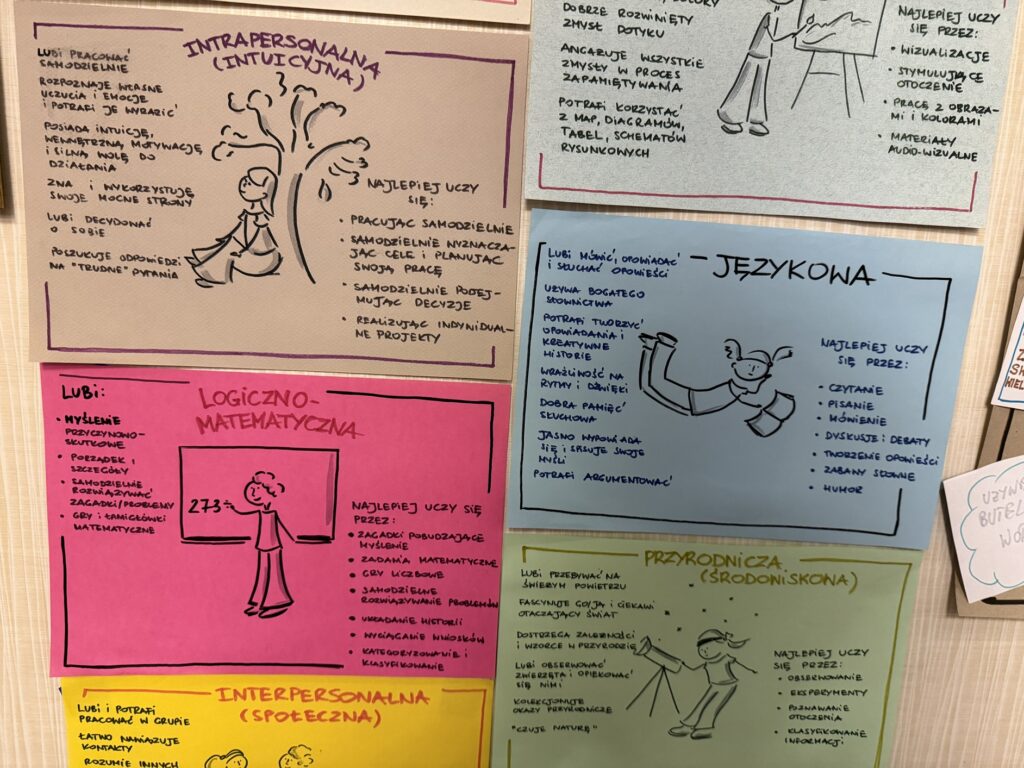 INTRAPERSONALNA
(INTUICYJNA)
LUBI PRACOWAĆ
SAMODZIELNIE
ROZPOZNAJE WŁASNE
UCZUCIA I EMOCJE
I POTRAFI JE WYRAZIĆ
POSIADA INTUICJĘ,
WEWNĘTRZNĄ MOTYWACJĘ
I SILNĄ WOLĘ DO
DZIAŁANIA
ZNA I WYKORZYSTUJE
SWOJE MOCNE STRONY
LUBI DECYDOWAĆ
O SOBIE
POSZUKUJE ODPOWIEDZI
NA "TRUDNE" PYTANIA
NAJLEPIEJ UCZY
SIĘ:
• PRACUJĄC SAMODZIELNIE
• SAMODZIELNIE WYZNACZA-
JĄC CELE I PLANUJĄC
SWOJĄ PRACĘ
• SAMODZIELNIE PODEJ-
MUJĄC DECYZJE
• REALIZUJĄC INDYWIDUAL-
NE PROJEKTY
DOBRZE ROZWINIĘTY
ZMYSŁ DOTYKU
ANGAŻUJE WSZYSTKIE
ZMYSŁY W PROCES
ZAPAMIĘTYWANIA
POTRAFI KORZYSTAĆ
Z MAP, DIAGRAMÓW,
TABEL, SCHEMATÓW
RYSUNKOWYCH
NAJLEPIEJ UCZY
SIĘ PRZEZ:
• WIZUALIZACJE
• STYMULUJĄCE
OTOCZENIE
• PRACĘ Z OBRAZA-
MI I KOLORAMI
• MATERIAŁY
AUDIO-WIZUALNE
JĘZYKOWA
LUBI MÓWIĆ, OPOWIADAĆ
I SŁUCHAĆ OPOWIEŚCI
UŻYWA BOGATEGO
SŁOWNICTWA
POTRAFI TWORZYĆ
OPOWIADANIA I
KREATYWNE
HISTORIE
WRAŻLIWOŚĆ NA
RYTMY I DŹWIĘKI
DOBRA PAMIĘĆ
SŁUCHOWA
JASNO WYPOWIADA
SIĘ I SPISUJE SWOJE
MYŚLI
POTRAFI ARGUMENTOWAĆ
NAJLEPIEJ UCZY
SIĘ PRZEZ:
• CZYTANIE
• PISANIE
• MÓWIENIE
• DYSKUSJE I DEBATY
• TWORZENIE OPOWIEŚCI
• ZABAWY SŁOWNE
• HUMOR
LOGICZNO-
MATEMATYCZNA
LUBI:
• MYŚLENIE
PRZYCZYNOWO-
SKUTKOWE
• PORZĄDEK I
SZCZEGÓŁY
• SAMODZIELNIE
ROZWIĄZYWAĆ
ZAGADKI/PROBLEMY
• GRY I ŁAMIGŁÓWKI
MATEMATYCZNE
273÷
NAJLEPIEJ UCZY SIĘ
PRZEZ:
• ZAGADKI POBUDZAJĄCE
MYŚLENIE
• ZADANIA MATEMATYCZNE
• GRY LICZBOWE
• SAMODZIELNE
ROZWIĄZYWANIE PROBLEMÓW
• UKŁADANIE HISTORII
• WYCIĄGANIE WNIOSKÓW
• KATEGORYZOWANIE I
KLASYFIKOWANIE
PRZYRODNICZA
(ŚRODOWISKOWA)
LUBI PRZEBYWAĆ NA
ŚWIEŻYM POWIETRZU
FASCYNUJE GO/JĄ I CIEKAWI
OTACZAJĄCY ŚWIAT
DOSTRZEGA ZALEŻNOŚCI
I WZORCE W PRZYRODZIE
LUBI OBSERWOWAĆ
ZWIERZĘTA I OPIEKOWAĆ
SIĘ NIMI
KOLEKCJONUJE
OKAZY PRZYRODNICZE
"CZUJE NATURĘ"
NAJLEPIEJ UCZY
SIĘ PRZEZ:
• OBSERWOWANIE
• EKSPERYMENTY
• POZNAWANIE
OTOCZENIA
• KLASYFIKOWANIE
INFORMACJI
INTERPERSONALNA
(SPOŁECZNA)
LUBI I POTRAFI
PRACOWAĆ W GRUPIE
ŁATWO NAWIĄZUJE
KONTAKTY
ROZUMIE INNYCH